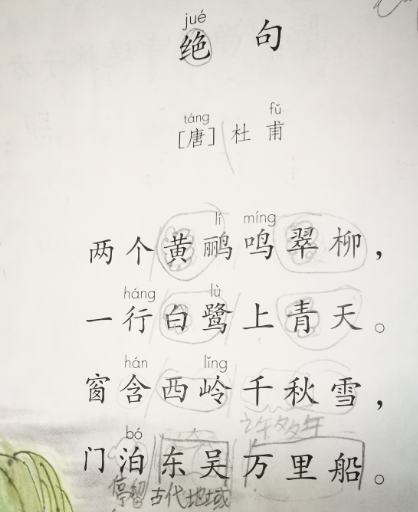 jué
绝句
táng fǔ
[唐]杜甫
lí míng
两个黄鹂鸣翠柳,
háng lù
一行白鹭上青天。
hán lǐng
窗含西岭千秋雪,
许多年
bó
门泊东吴万里船。
停留 古代地域